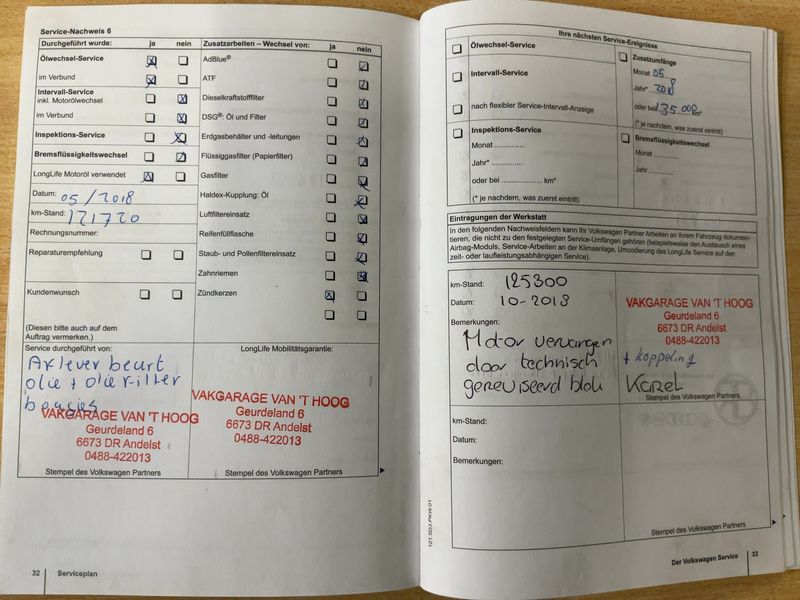 Service-Nachweis 6
Durchgeführt wurde: ja nein
Ölwechsel-Service
im Verbund
Intervall-Service
inkl. Motorölwechsel
im Verbund
Inspektions-Service
Bremsflüssigkeitswechsel
LongLife Motoröl verwendet
Datum: 05/2018
km-Stand: 121720
Rechnungsnummer:
Reparaturempfehlung
Kundenwunsch
(Diesen bitte auch auf dem
Auftrag vermerken.)
Zusatzarbeiten – Wechsel von: ja nein
AdBlue®
ATF
Dieselkraftstofffilter
DSG®: Öl und Filter
Erdgasbehälter und -leitungen
Flüssiggasfilter (Papierfilter)
Gasfilter
Haldex-Kupplung: Öl
Luftfiltereinsatz
Reifenfüllflasche
Staub- und Pollenfiltereinsatz
Zahnriemen
Zündkerzen
Service durchgeführt von:
beurt
olie + olie filter
bougies
VAKGARAGE VAN 'T HOOG
Geurdeland 6
6673 DR Andelst
0488-422013
Stempel des Volkswagen Partners
LongLife Mobilitätsgarantie:
VAKGARAGE VAN 'T HOOG
Geurdeland 6
6673 DR Andelst
0488-422013
Stempel des Volkswagen Partners
32 Serviceplan
Ihre nächsten Service-Ereignisse
Ölwechsel-Service
Intervall-Service
nach flexibler Service-Intervall-Anzeige
Inspektions-Service
Monat ..............
Jahr* ..............
oder bei .................. km*
(* je nachdem, was zuerst eintritt)
Zusatzumfänge
Monat 05
Jahr* 2018
oder bei 135.000 km*
(* je nachdem, was zuerst eintritt)
Bremsflüssigkeitswechsel
Monat ........
Jahr ........
Eintragungen der Werkstatt
In den folgenden Nachweisfeldern kann Ihr Volkswagen Partner Arbeiten an Ihrem Fahrzeug dokumen-
tieren, die nicht zu den festgelegten Service-Umfängen gehören (beispielsweise den Austausch eines
Airbag-Moduls, Service-Arbeiten an der Klimaanlage, Umcodierung des LongLife Service auf den
zeit- oder laufleistungsabhängigen Service).
km-Stand: 125300
Datum: 10-2018
Bemerkungen:
Motor vervangen
door technisch + koppeling
gereviseerd blok Karel
VAKGARAGE VAN 'T HOOG
Geurdeland 6
6673 DR Andelst
0488-422013
Stempel des Volkswagen Partners
km-Stand:
Datum:
Bemerkungen:
Stempel des Volkswagen Partners
121.5D3.PKW.01
Der Volkswagen Service 33